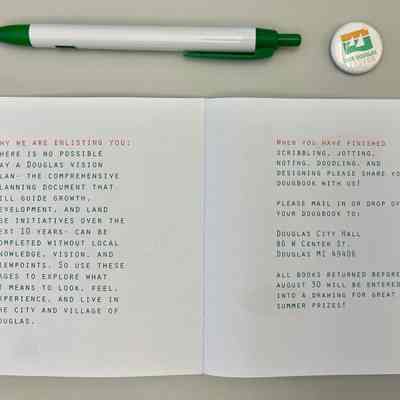 WHY WE ARE ENLISTING YOU:
THERE IS NO POSSIBLE
WAY A DOUGLAS VISION
PLAN- THE COMPREHENSIVE
PLANNING DOCUMENT THAT
WILL GUIDE GROWTH,
DEVELOPMENT, AND LAND
USE INITIATIVES OVER THE
NEXT 10 YEARS- CAN BE
COMPLETED WITHOUT LOCAL
KNOWLEDGE, VISION, AND
VIEWPOINTS. SO USE THESE
PAGES TO EXPLORE WHAT
IT MEANS TO LOOK, FEEL,
EXPERIENCE, AND LIVE IN
THE CITY AND VILLAGE OF
DOUGLAS.
WHEN YOU HAVE FINISHED
SCRIBBLING, JOTTING,
NOTING, DOODLING, AND
DESIGNING PLEASE SHARE YO
DOUGBOOK WITH US!
PLEASE MAIL IN OR DROP OF
YOUR DOUGBOOK TO:
DOUGLAS CITY HALL
86 W CENTER ST.
DOUGLAS MI 49406
ALL BOOKS RETURNED BEFORE
AUGUST 30 WILL BE ENTERED
INTO A DRAWING FOR GREAT
SUMMER PRIZES!